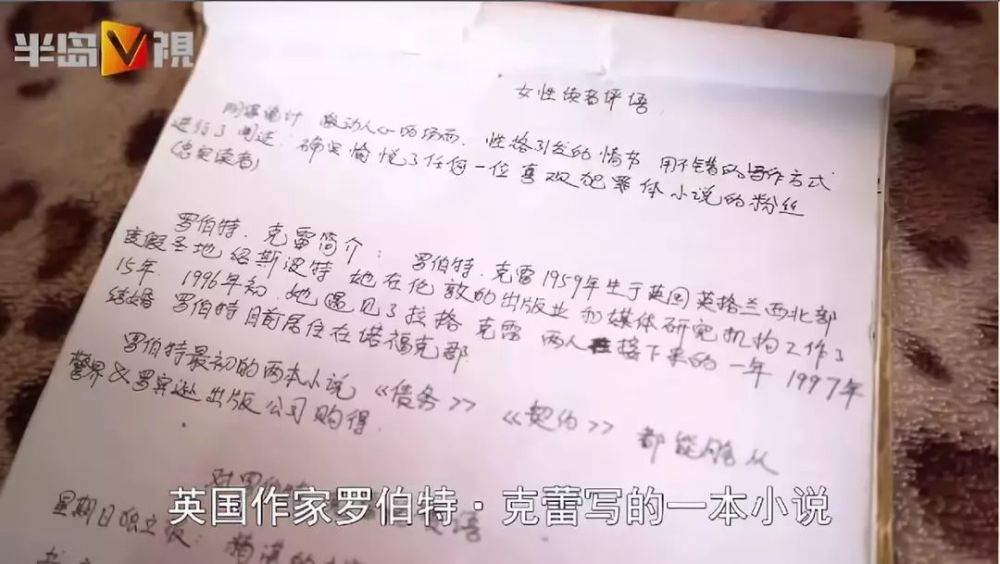 半岛V視
女性读者评语
阴谋诡计 激动人心的场面 性格引发的情节 用不错的写作方式
进行了阐述. 确实愉悦了任何一位喜欢犯罪体小说的粉丝
(忠实读者)
罗伯特.克雷简介: 罗伯特.克雷1959年生于英国英格兰西北部
度假圣地 绍斯波特 她在伦敦的出版业和媒体研究机构工作了
15年. 1996年初.她遇见了拉格 克雷 两人在接下来的一年 1997年
结婚 罗伯特目前居住在诺福克郡.
罗伯特最初的两本小说《债务》《契约》都能够从
警界&罗宾逊出版公司购得.
对罗伯特
星期日独立报:
英国作家罗伯特·克蕾写的一本小说